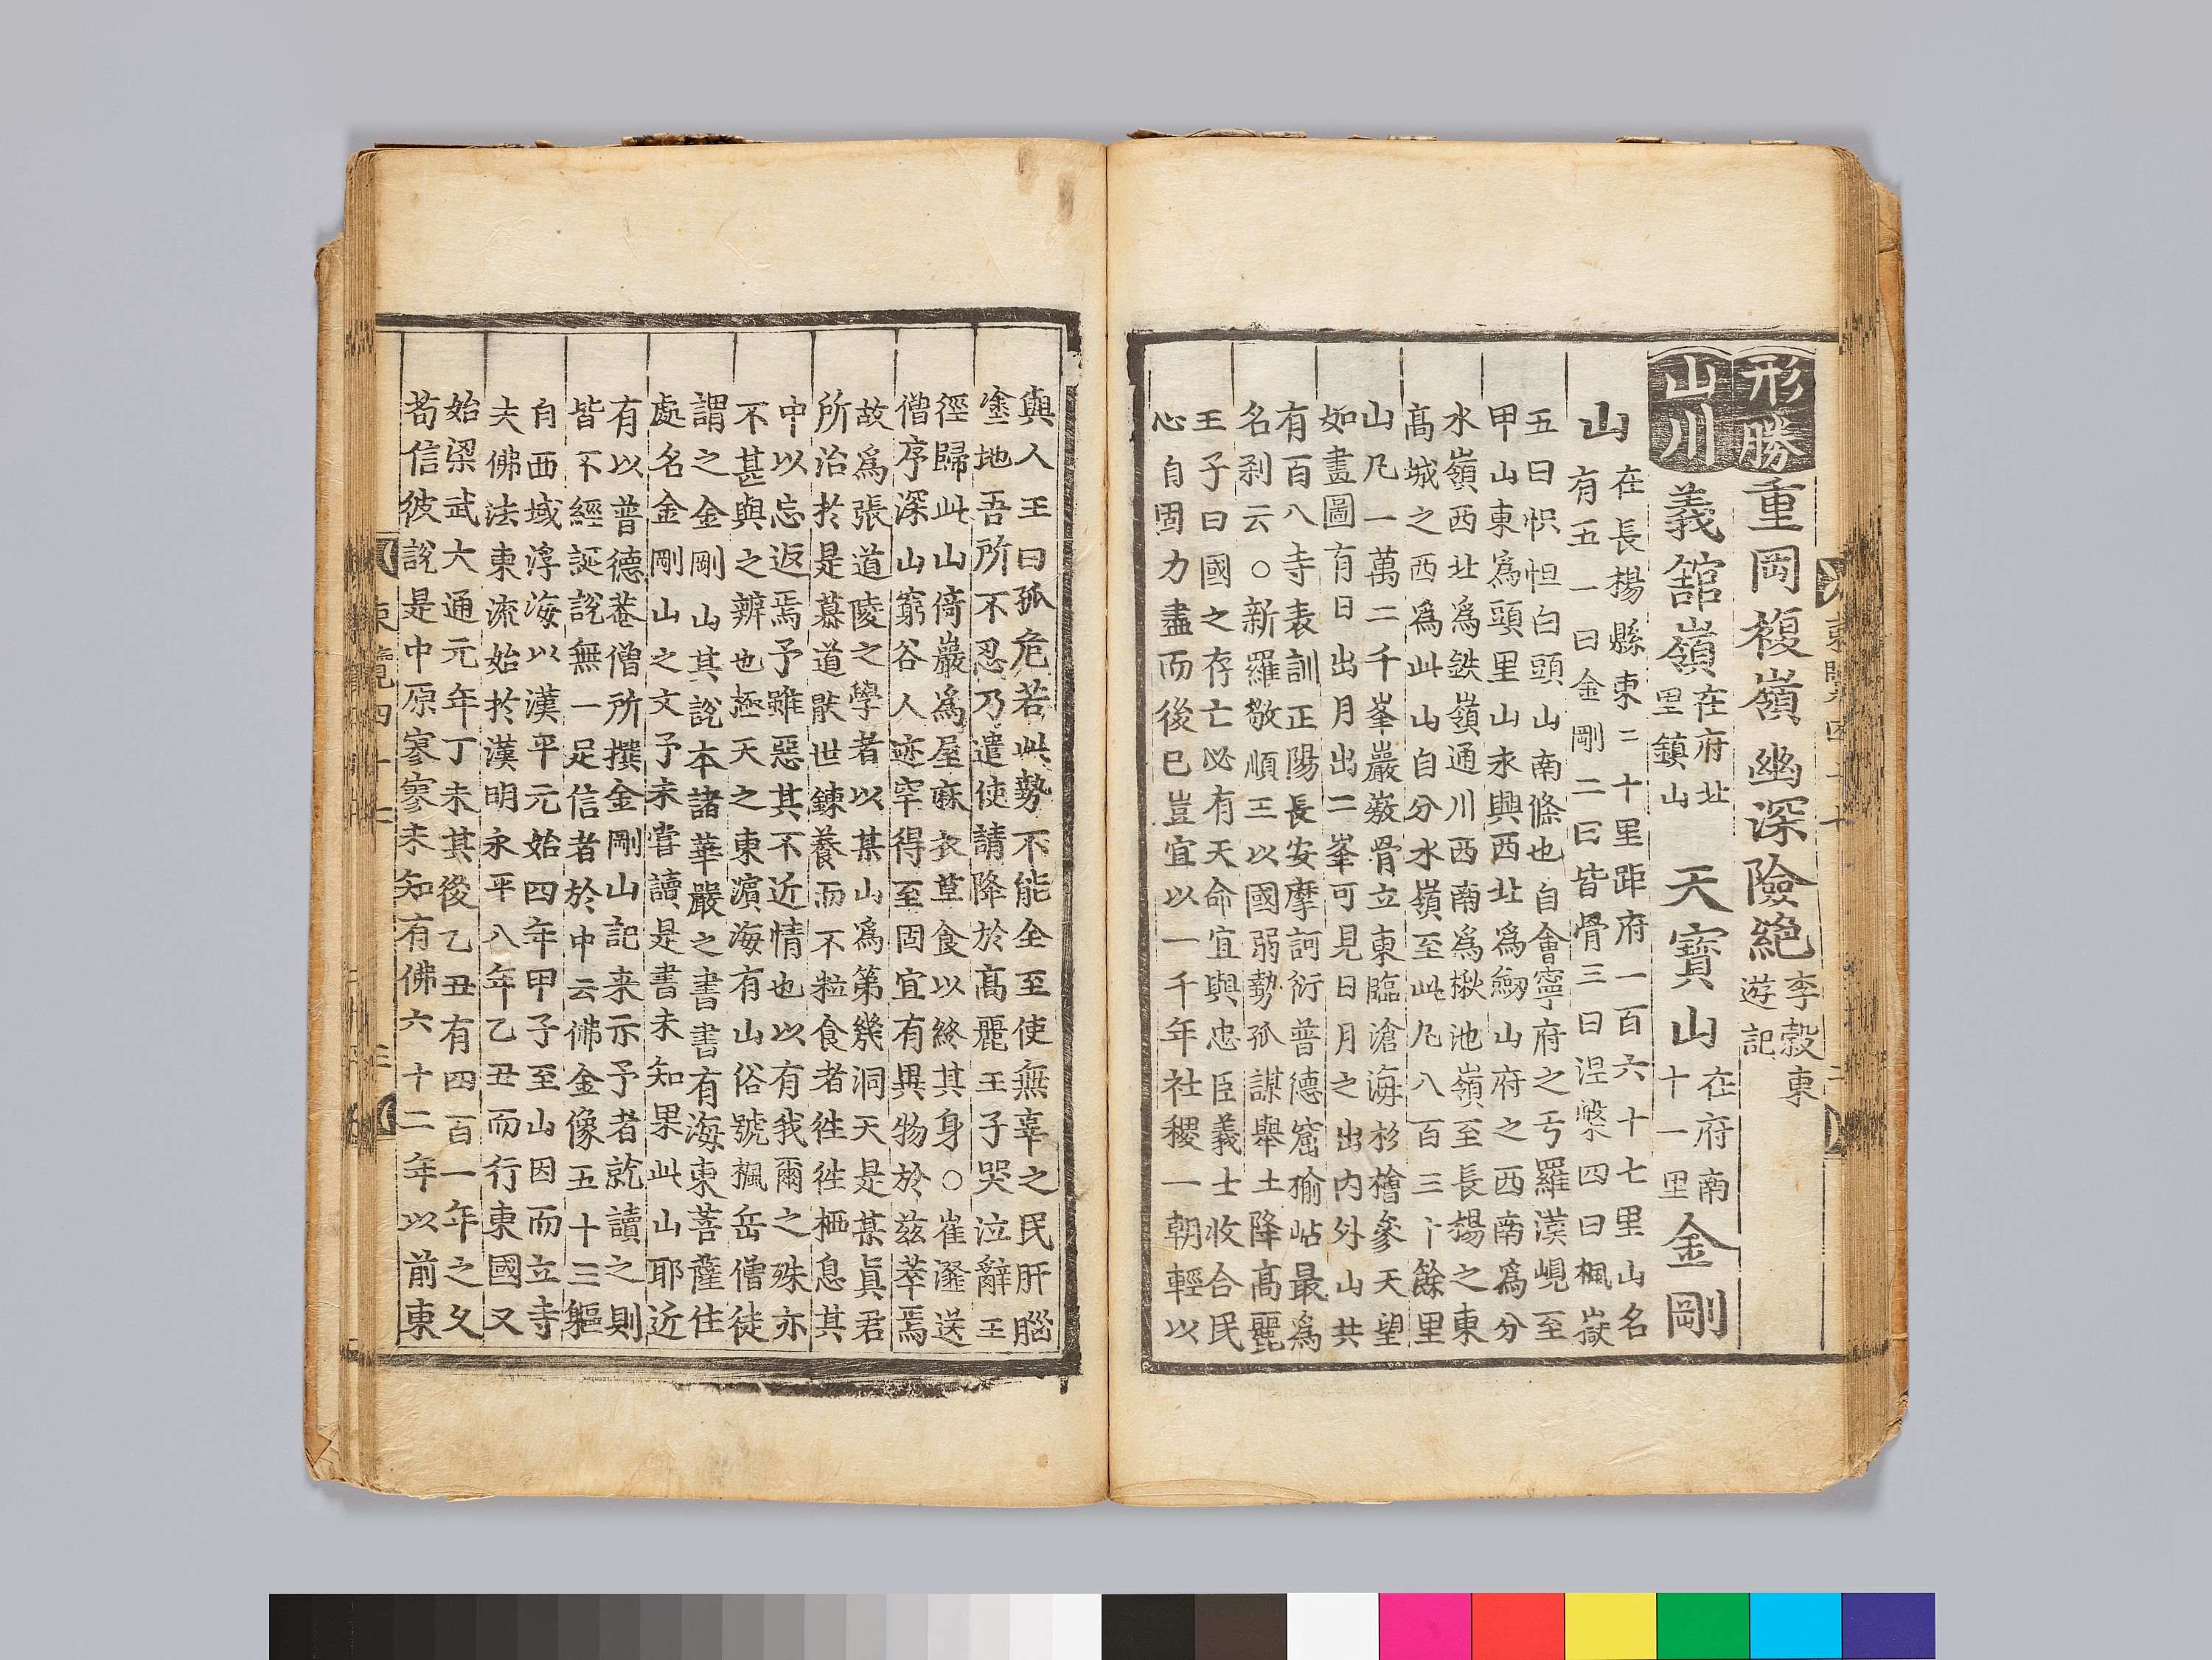 形勝 重岡複嶺幽深險絶 李穀東
遊記
山川 義舘嶺 在府北
里鎮山 天寶山 在府南
十一里 金剛
山 在長楊縣東二十里距府一百六十七里山名
有五一曰金剛二曰皆骨三曰涅槃四曰楓嶽
五曰怾怛白頭山南條也自會寧府之亐羅漢峴至
甲山東爲頭里山永興西北爲劒山府之西南爲分
水嶺西北爲鉄嶺通川西南爲楸池嶺至長楊之東
髙城之西爲此山自分水嶺至此凡八百三十餘里
山凡一萬二千峯巖骨立東臨滄海杉檜參天望
如畫圖有日出月出二峯可見日月之出内外山共
有百八寺表訓正陽長安摩訶衍普德窟楡岾最爲
名刹云○新羅敬順王以國弱勢孤謀舉土降髙麗
王子曰國之存亡必有天命宜與忠臣義士收合民
心自固力盡而後已豈宜以一千年社稷一朝輕以
與人王曰孤危若此勢不能全至使無辜之民肝腦
塗地吾所不忍乃遣使請降於髙麗王子哭泣辭王
徑歸此山倚巖爲屋麻衣草食以終其身○崔瀣送
僧序深山窮谷人迹罕得至固宜有異物於兹萃焉
故爲張道陵之學者以某山爲第幾洞天是某眞君
所治扵是慕道猒世鍊養而不粒食者徃徃栖息其
中以忘返焉予雖惡其不近情也以有我爾之殊亦
不甚與之辨也極天之東濵海有山俗號楓岳僧徒
謂之金剛山其說本諸華嚴之書書有海東菩薩住
處名金剛山之文予未甞讀是書未知果此山耶近
有以普德菴僧所撰金剛山記来示予者就讀之則
皆不經誕說無一足信者於中云佛金像五十三軀
自西域浮海以漢平元始四年甲子至山因而立寺
夫佛法東流始扵漢明永平八年乙丑而行東國又
始梁武大通元年丁未其後乙丑有四百一年之久
苟信彼說是中原寥寥未知有佛六十二年以前東